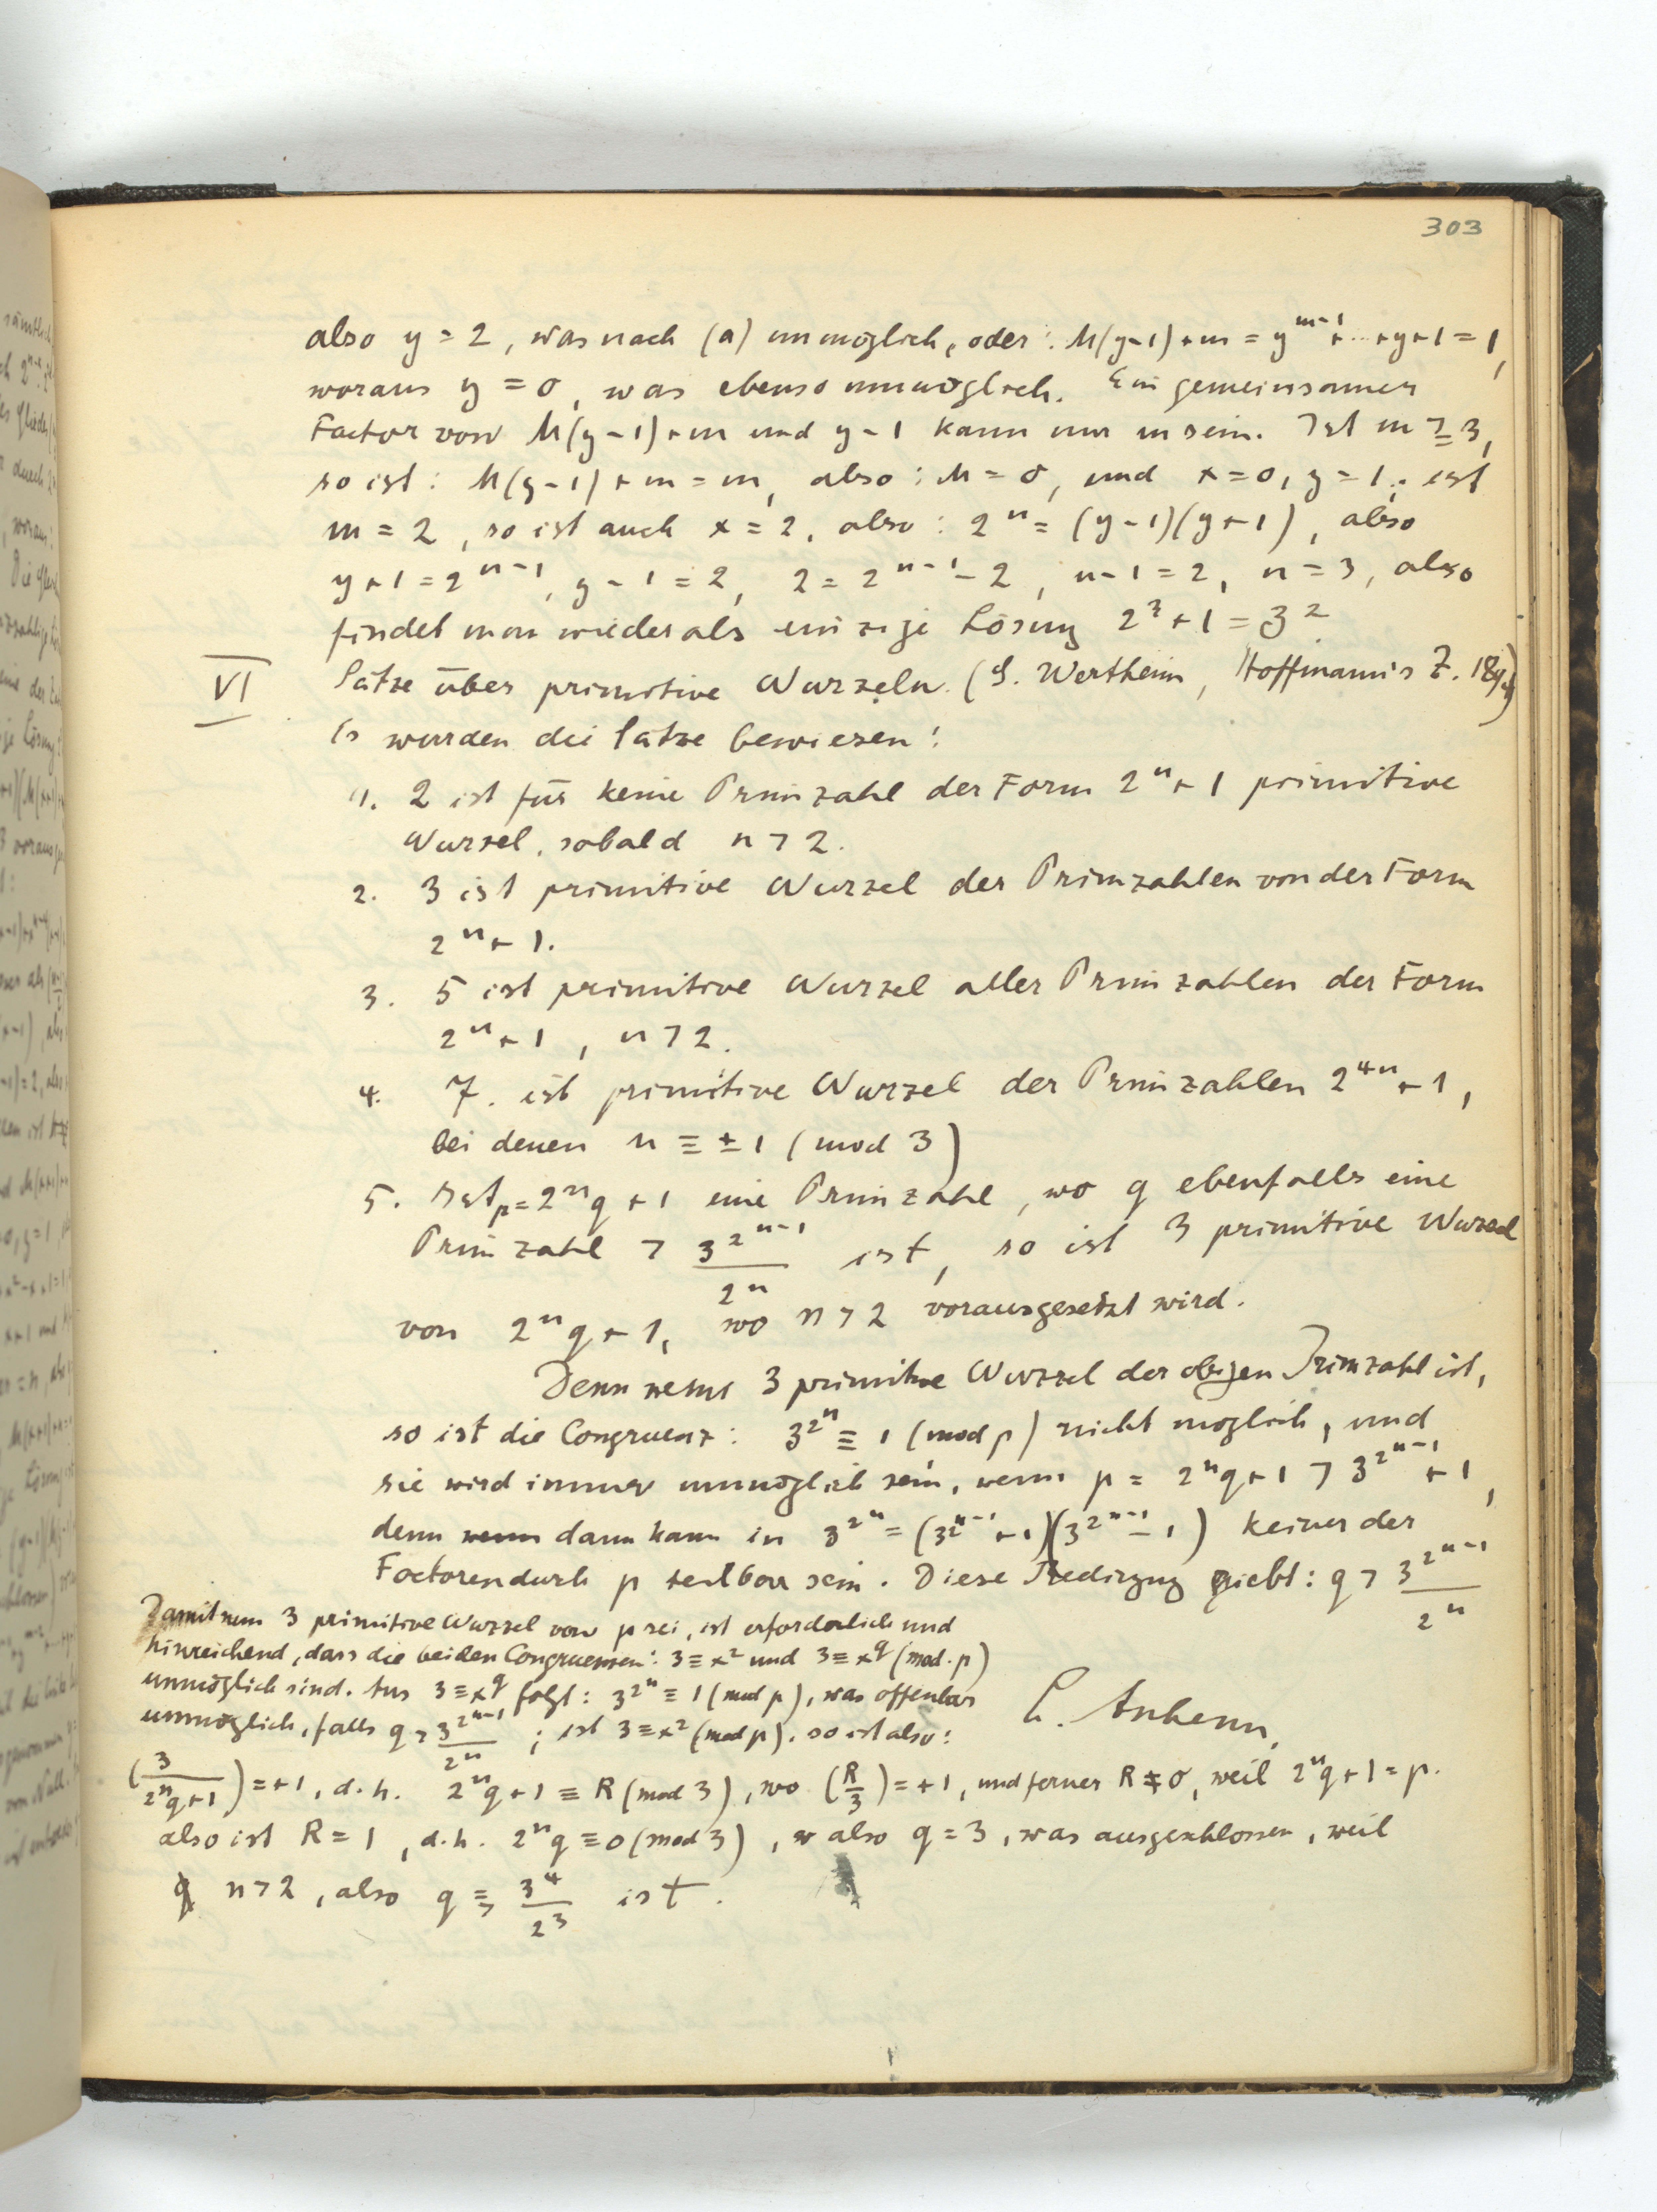 303
also y = 2, was nach (a) unmöglich, oder: M(y-1)+m = y^{m-1}+...+y+1 = 1,
woraus y = 0, was ebenso unmöglich. Ein gemeinsamer
Factor von M(y-1)+m und y-1 kann nur m sein. Ist m ≥ 3,
so ist: M(y-1)+m = m, also: M = 0, und x=0, y=1; ist
m = 2, so ist auch x = 2, also: 2^n = (y-1)(y+1), also
y+1 = 2^{n-1}, y-1 = 2, 2 = 2^{n-1}-2, n-1 = 2, n = 3, also
findet man wieder als einzige Lösung 2^3+1 = 3^2
VI Sätze über primitive Wurzeln. (G. Wertheim, Hoffmann's Z. 1894)
Es wurden die Sätze bewiesen:
1. 2 ist für keine Primzahl der Form 2^n+1 primitive
Wurzel, sobald n > 2.
2. 3 ist primitive Wurzel der Primzahlen von der Form
2^n+1.
3. 5 ist primitive Wurzel aller Primzahlen der Form
2^n+1, n > 2.
4. 7 ist primitive Wurzel der Primzahlen 2^{4n}+1,
bei denen n ≡ ±1 (mod 3)
5. Ist p = 2^n q + 1 eine Primzahl, wo q ebenfalls eine
Primzahl > \frac{3^{2^{n-1}}}{2^n} ist, so ist 3 primitive Wurzel
von 2^n q + 1, wo n > 2 vorausgesetzt wird.
Denn wenn 3 primitive Wurzel der obigen Primzahl ist,
so ist die Congruenz: 3^{2^n} ≡ 1 (mod p) nicht möglich, und
sie wird immer unmöglich sein, wenn p = 2^n q + 1 > 3^{2^{n-1}} + 1,
denn wenn dann kann in 3^{2^n} = (3^{2^{n-1}}+1)(3^{2^{n-1}}-1) keiner der
Factoren durch p teilbar sein. Diese Bedingung giebt: q > \frac{3^{2^{n-1}}}{2^n}
Damit nun 3 primitive Wurzel von p sei, ist erforderlich und
hinreichend, dass die beiden Congruenzen: 3 ≡ x^2 und 3 ≡ x^q (mod. p)
unmöglich sind. Aus 3 ≡ x^q folgt: 3^{2^n} ≡ 1 (mod p), was offenbar
unmöglich, falls q > \frac{3^{2^{n-1}}}{2^n}; ist 3 ≡ x^2 (mod p), so ist also:
(\frac{3}{2^n q+1}) = +1, d.h. 2^n q + 1 ≡ R (mod 3), wo (\frac{R}{3}) = +1, und ferner R ≠ 0, weil 2^n q + 1 = p.
also ist R = 1, d.h. 2^n q ≡ 0 (mod 3), also q = 3, was ausgeschlossen, weil
n > 2, also q ≥ \frac{3^4}{2^3} ist.